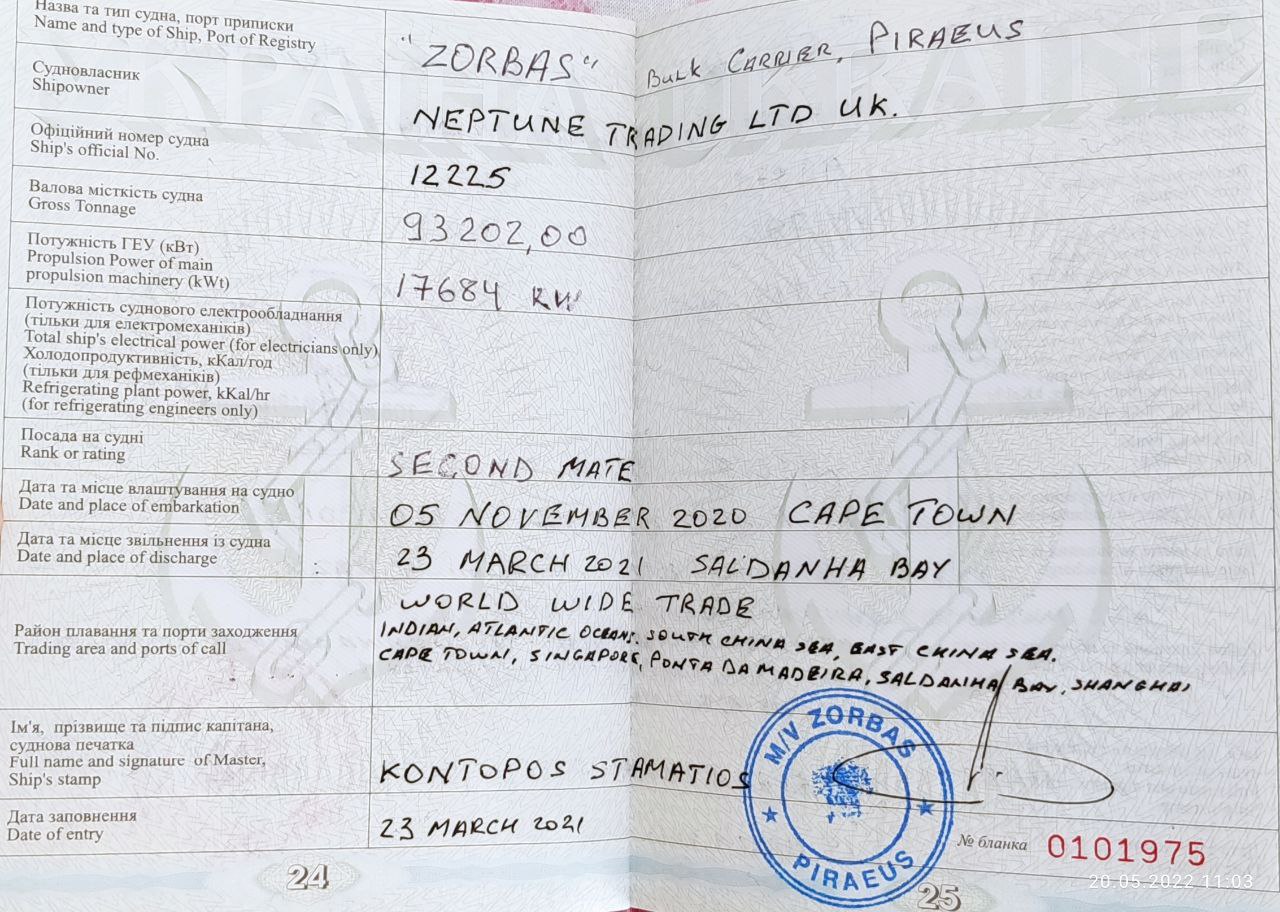 Назва та тип судна, порт приписки
Name and type of Ship, Port of Registry
"ZORBAS" BULK CARRIER, PIRAEUS
Судновласник
Shipowner
NEPTUNE TRADING LTD UK.
Офіційний номер судна
Ship's official No.
12225
Валова місткість судна
Gross Tonnage
93202,00
Потужність ГЕУ (кВт)
Propulsion Power of main
propulsion machinery (kWt)
17684 KW
Потужність суднового електрообладнання
(тільки для електромеханіків)
Total ship's electrical power (for electricians only)
Холодопродуктивність, кКал/год
(тільки для рефмеханіків)
Refrigerating plant power, kKal/hr
(for refrigerating engineers only)
Посада на судні
Rank or rating
SECOND MATE
Дата та місце влаштування на судно
Date and place of embarkation
05 NOVEMBER 2020 CAPE TOWN
Дата та місце звільнення із судна
Date and place of discharge
23 MARCH 2021 SALDANHA BAY
Район плавання та порти заходження
Trading area and ports of call
WORLD WIDE TRADE
INDIAN, ATLANTIC OCEANS. SOUTH CHINA SEA, EAST CHINA SEA.
CAPE TOWN, SINGAPORE, PONTA DA MADEIRA, SALDANHA BAY, SHANGHAI
Ім'я, прізвище та підпис капітана,
суднова печатка
Full name and signature of Master,
Ship's stamp
KONTOPOS STAMATIOS
M/V ZORBAS
PIRAEUS
Дата заповнення
Date of entry
23 MARCH 2021
№ бланка 0101975
24
25
20.05.2022 11:03